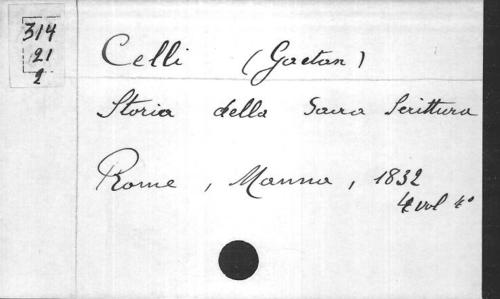 314
21
2
Celli (Gaetan)
Storia della Sacra Scrittura
Rome, Manna, 1832
4 vol 4°